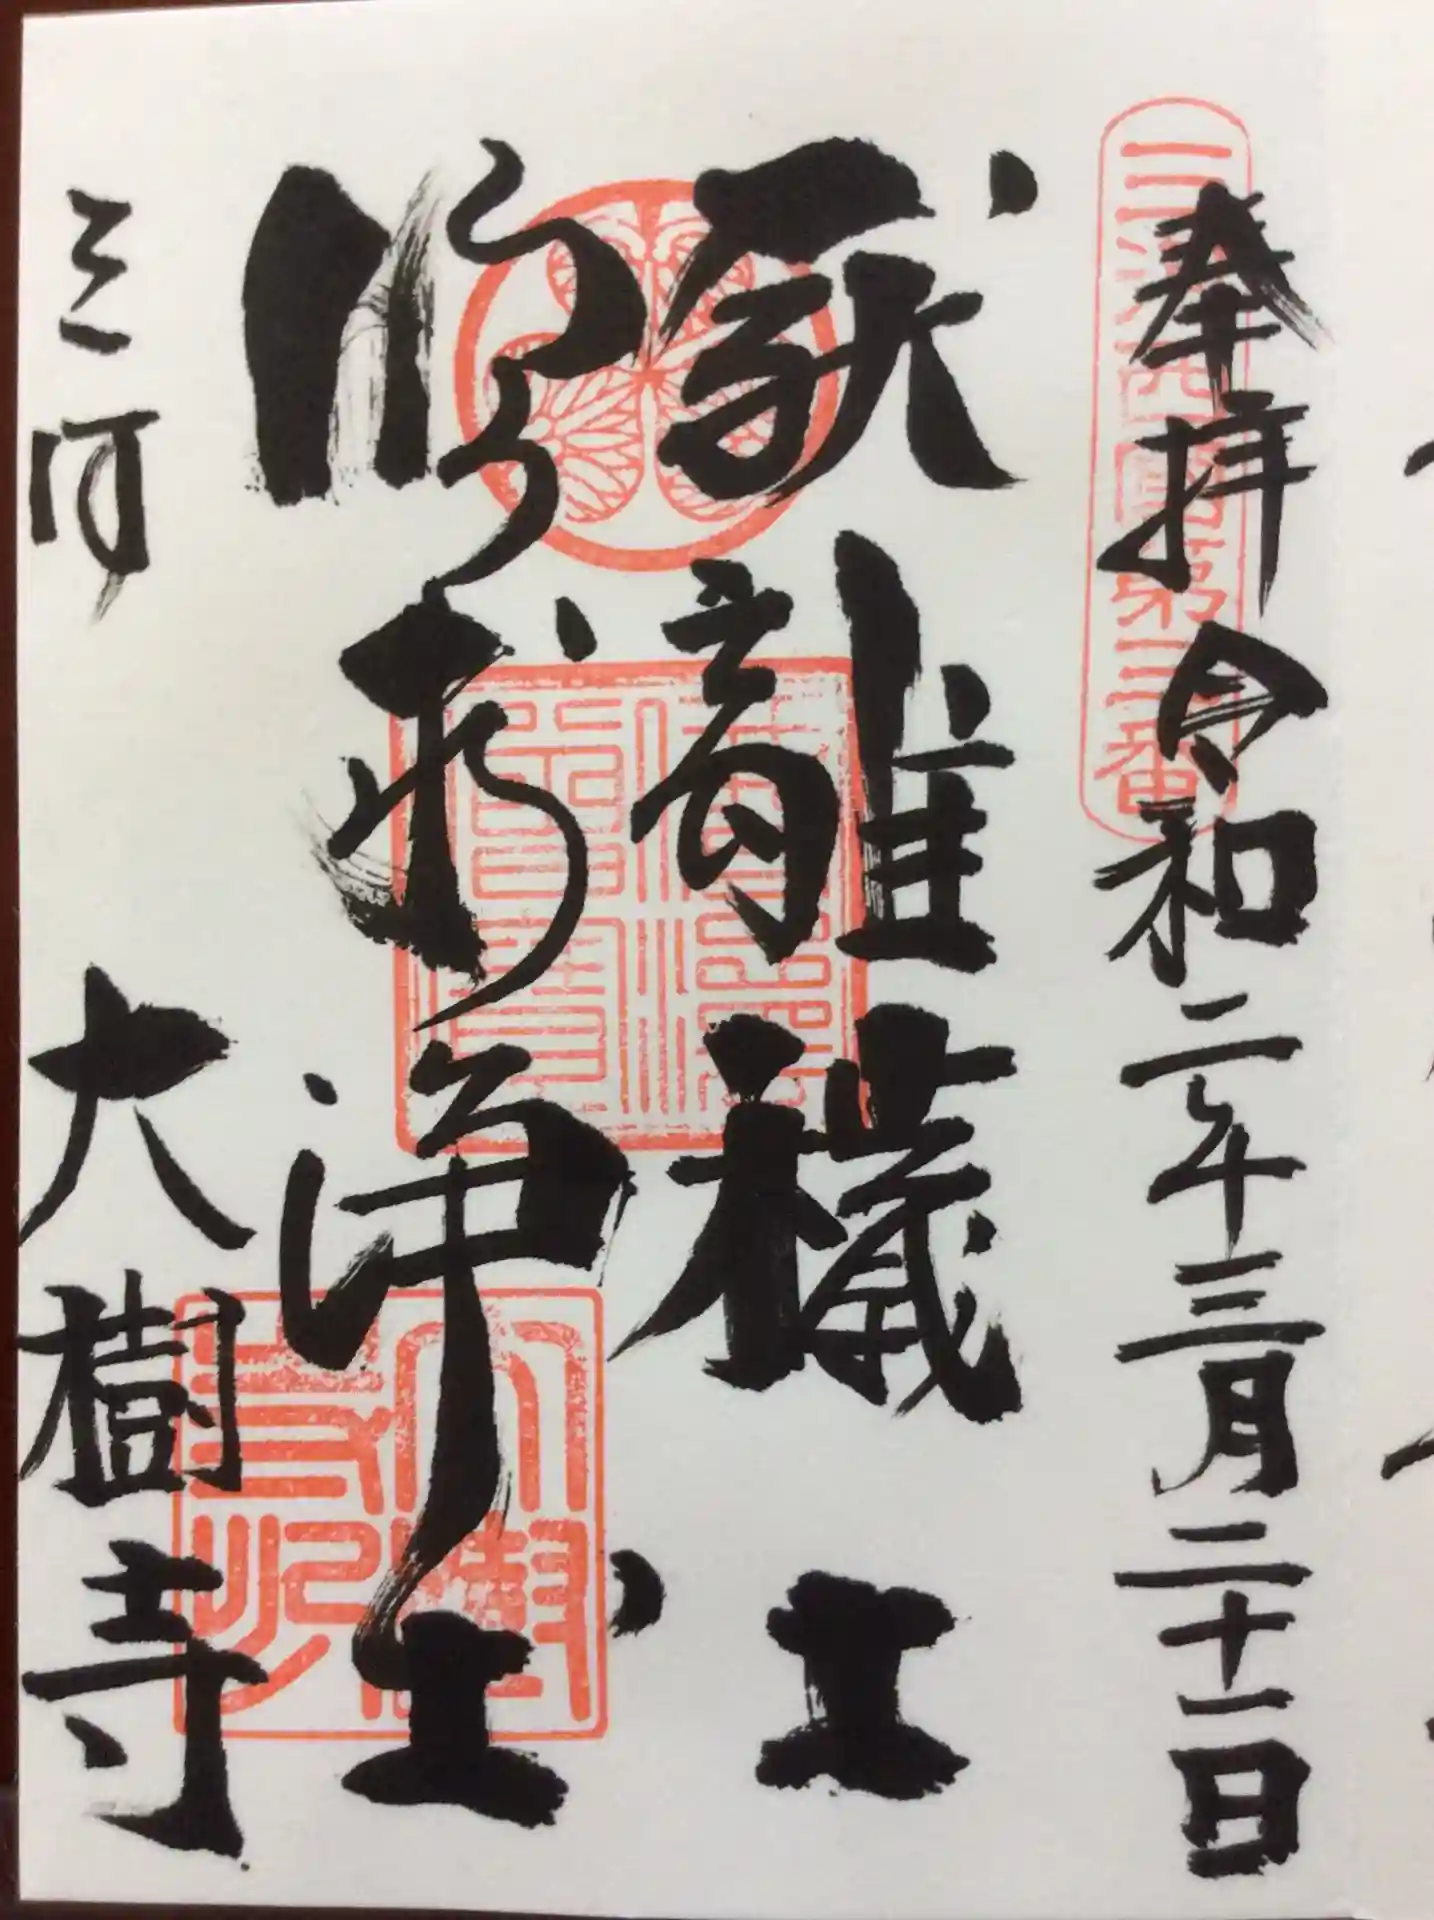 奉拝 令和二年三月二十一日
三河西国第三番
厭離穢土
欣求浄土
三河 大樹寺